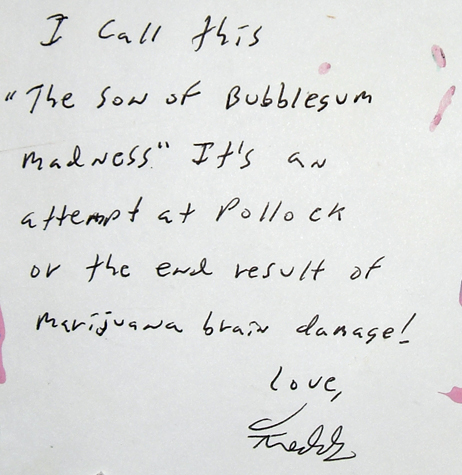 I Call this
"The Son of Bubblegum
madness" It's an
attempt at Pollock
or the end result of
marijuana brain damage!
Love,
Freddy